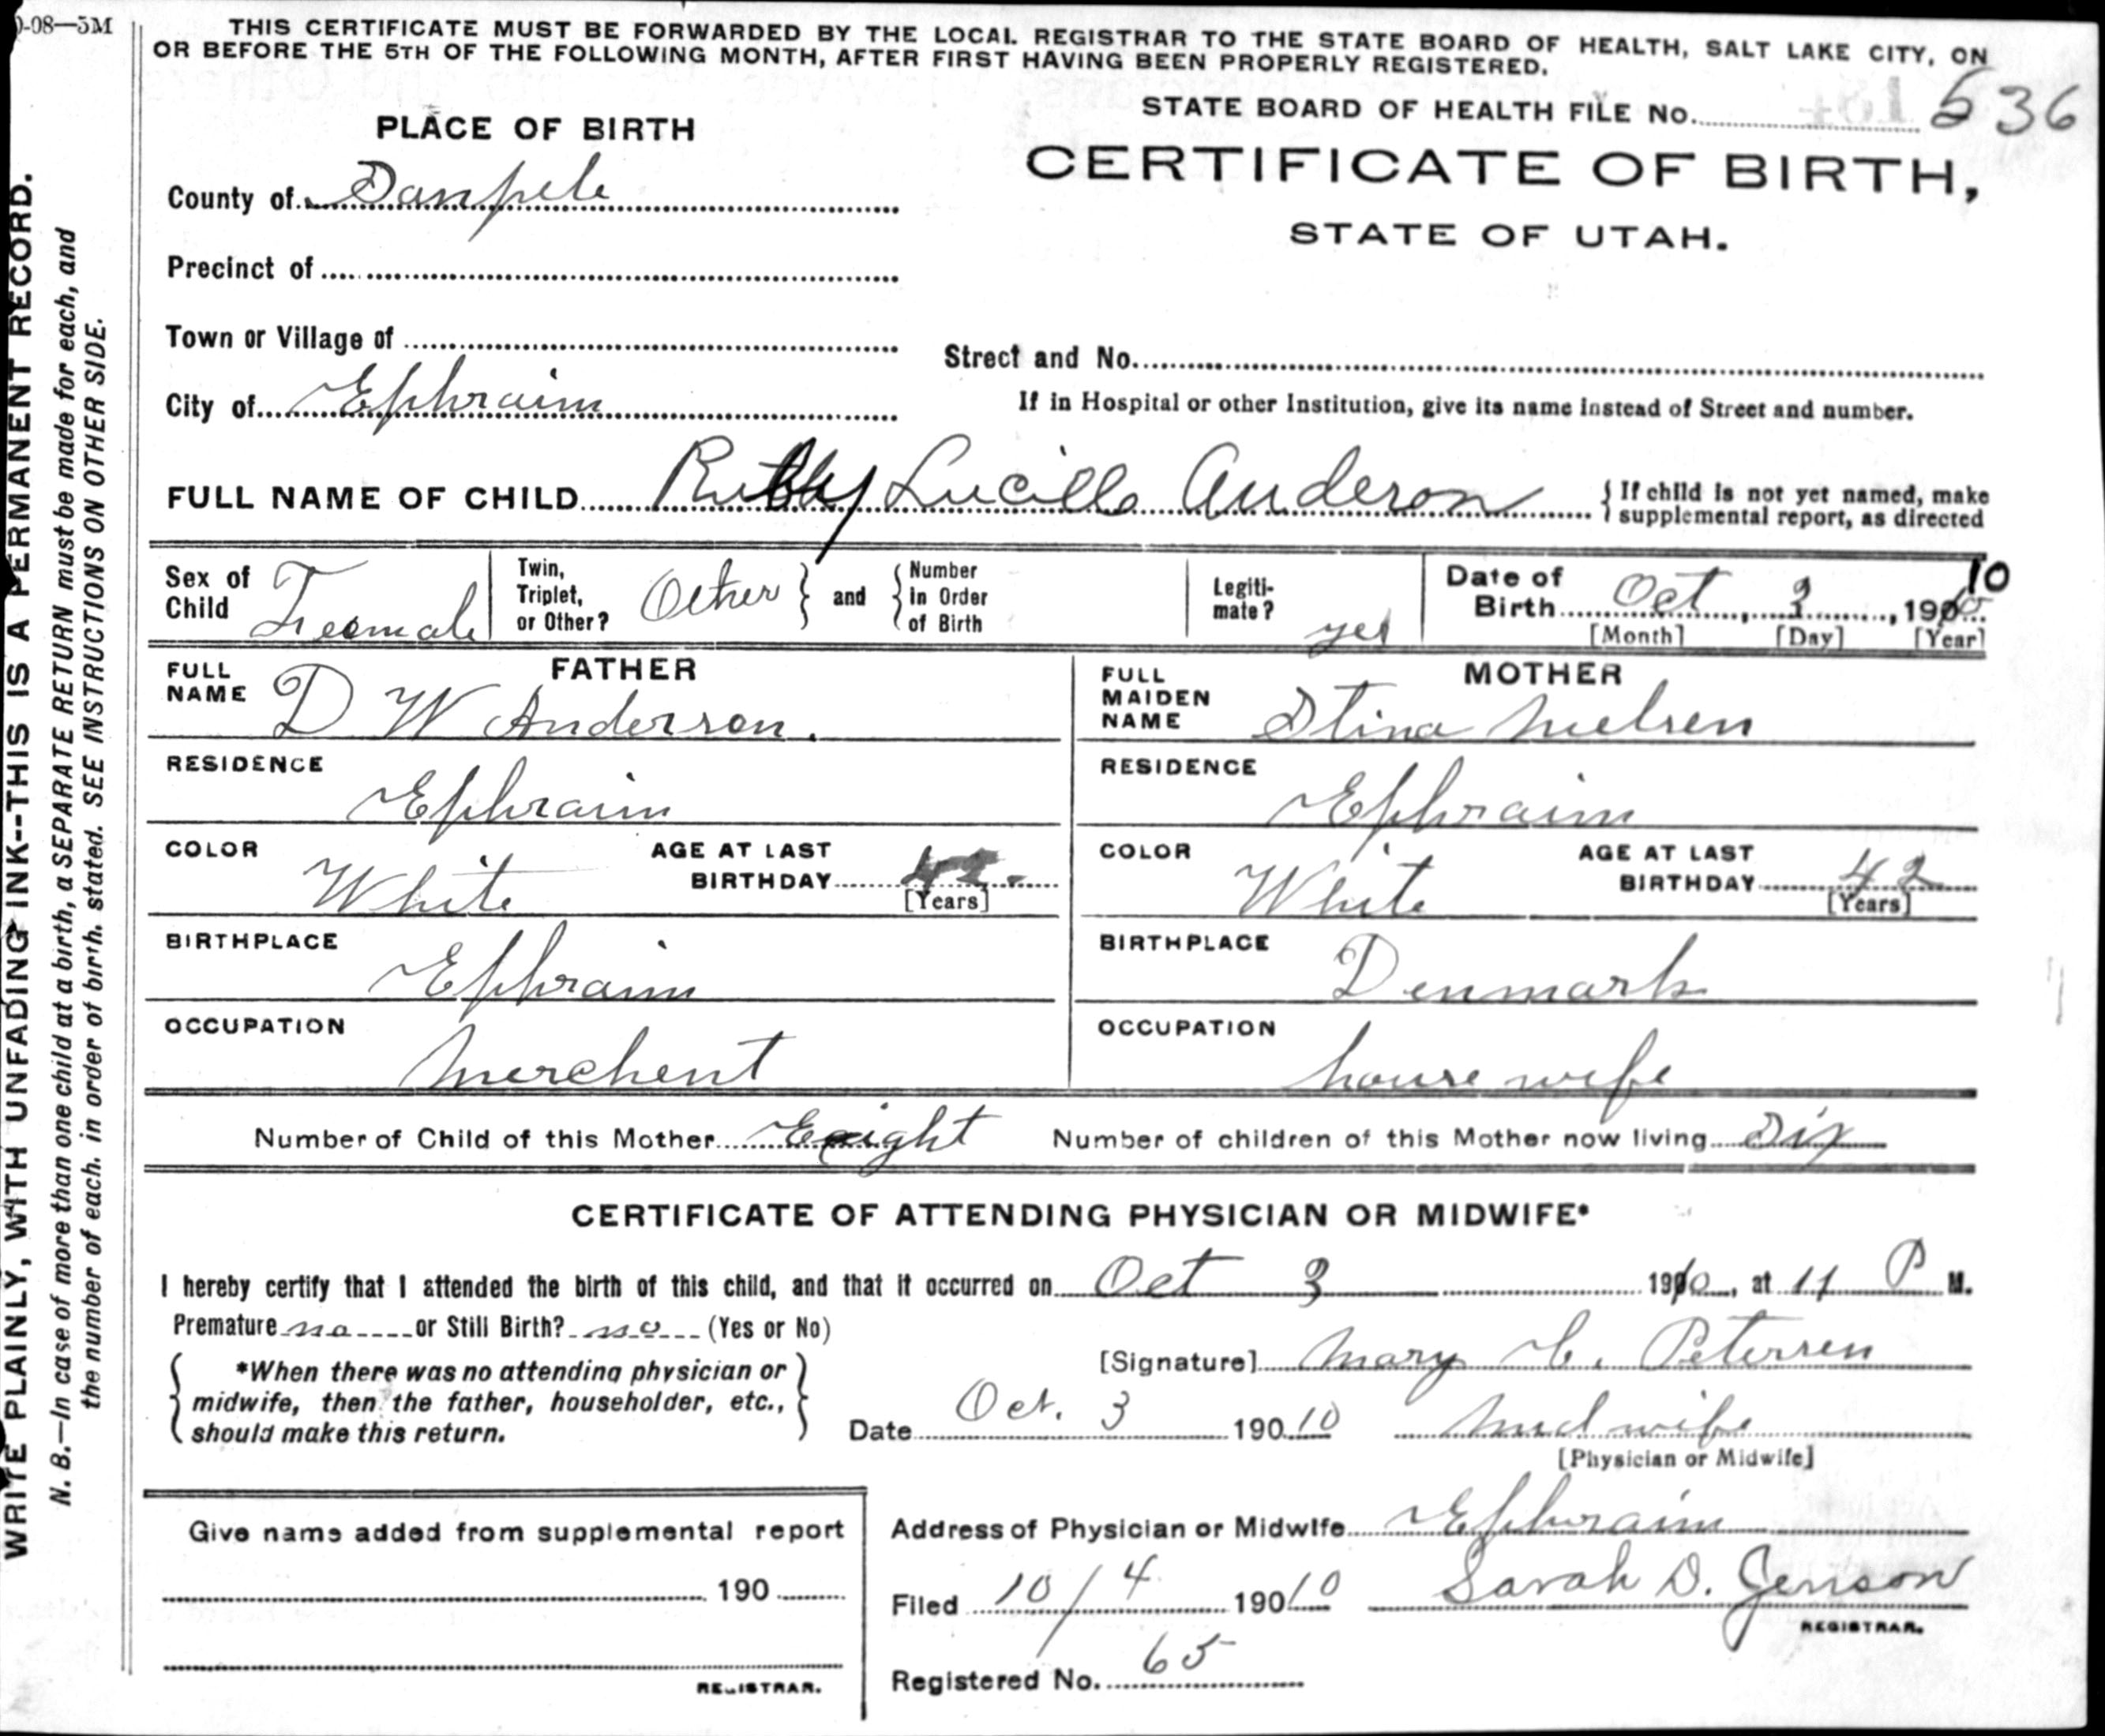 0-08—5M
THIS CERTIFICATE MUST BE FORWARDED BY THE LOCAL REGISTRAR TO THE STATE BOARD OF HEALTH, SALT LAKE CITY, ON
OR BEFORE THE 5TH OF THE FOLLOWING MONTH, AFTER FIRST HAVING BEEN PROPERLY REGISTERED.
STATE BOARD OF HEALTH FILE No. 536
PLACE OF BIRTH
CERTIFICATE OF BIRTH,
STATE OF UTAH.
County of Sanpete
Precinct of
Town or Village of
Street and No.
City of Ephraim
If in Hospital or other Institution, give its name instead of Street and number.
FULL NAME OF CHILD Ruby Lucille Anderson
{ If child is not yet named, make
supplemental report, as directed
Sex of Child Feemale
Twin, Triplet, or Other? Other } and { Number in Order of Birth
Legiti-mate? yes
Date of Birth Oct, 3, 1910
[Month] [Day] [Year]
FATHER
FULL NAME D W Anderson.
MOTHER
FULL MAIDEN NAME Stina Nielsen
RESIDENCE Ephraim
RESIDENCE Ephraim
COLOR White AGE AT LAST BIRTHDAY [Years]
COLOR White AGE AT LAST BIRTHDAY 42 [Years]
BIRTHPLACE Ephraim
BIRTHPLACE Denmark
OCCUPATION Merchent
OCCUPATION house wife
Number of Child of this Mother Eaight Number of children of this Mother now living Six
CERTIFICATE OF ATTENDING PHYSICIAN OR MIDWIFE*
I hereby certify that I attended the birth of this child, and that it occurred on Oct 3 1910, at 11 P M.
Premature no or Still Birth? no (Yes or No)
{ *When there was no attending physician or
midwife, then the father, householder, etc.,
should make this return. }
[Signature] Mary C. Petersen
Date Oct. 3 190 10 Mid wife
[Physician or Midwife]
Give name added from supplemental report
190
REGISTRAR.
Address of Physician or Midwife Ephraim
Filed 10/4 190 10 Sarah D. Jenson
REGISTRAR.
Registered No. 65
WRITE PLAINLY, WITH UNFADING INK--THIS IS A PERMANENT RECORD.
N. B.—In case of more than one child at a birth, a SEPARATE RETURN must be made for each, and
the number of each, in order of birth, stated. SEE INSTRUCTIONS ON OTHER SIDE.